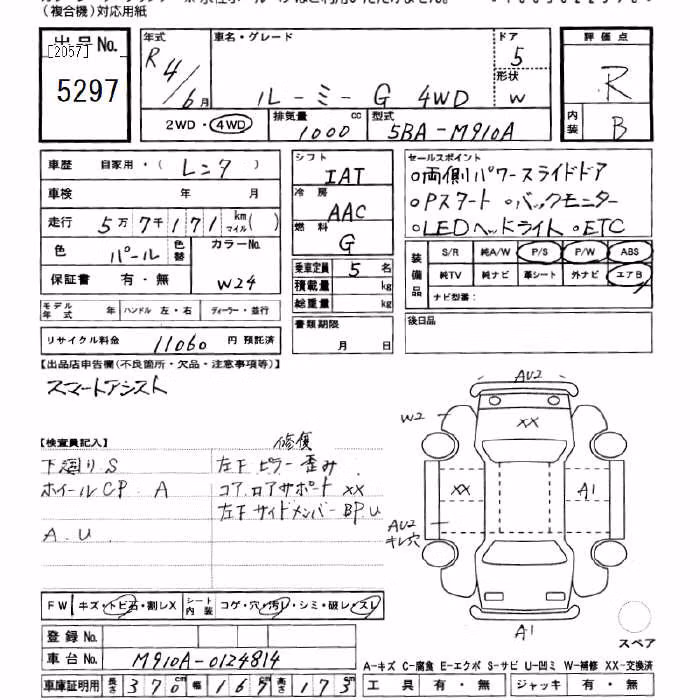 (複合機)対応用紙
出品No.
[2057]
5297
年式
R 4/6月
車名・グレード
ルーミー G 4WD
ドア
5
形状
W
評価点
R
内装
B
2WD・4WD
排気量
1000 cc
型式
5BA-M910A
車歴 自家用・( レンタ )
車検 年 月
走行 5万7千171 km マイル( )
色 パール 色替 カラーNo. W24
保証書 有・無
モデル年式 年 ハンドル 左・右 ディーラー・並行
リサイクル料金 11060 円 預託済
シフト
IAT
冷房
AAC
燃料
G
乗車定員 5 名
積載量 kg
総重量 kg
書類期限
月 日
セールスポイント
○両側パワースライドドア
○Pスタート ○バックモニター
○LEDヘッドライト ○ETC
装備品
S/R 純A/W P/S P/W ABS
純TV 純ナビ 革シート 外ナビ エアB
ナビ型番:
後日品
【出品店申告欄(不良箇所・欠品・注意事項等)】
スマートアシスト
【検査員記入】
下廻り S
ホイールCP A
A U
修復
左F ピラー 歪み
コアロアサポート XX
左F サイドメンバー BP U
AU2
W2
XX
XX
A1
AU2
キレ穴
A1
スペア
FW キズ・トビ石・割レX シート内装 コゲ・穴・汚レ・シミ・破レ・スレ
登録No.
車台No. M910A-0124814
車庫証明用 長さ 370cm 幅 167cm 高さ 173cm
A-キズ C-腐食 E-エクボ S-サビ U-凹ミ W-補修 XX-交換済
工具 有・無 ジャッキ 有・無